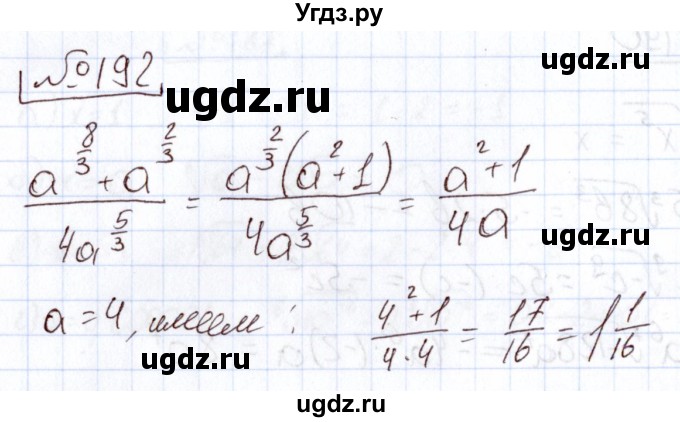 Угдз.ру
№192
ugdz.ru
ugdz.ru
(a^(8/3) + a^(2/3))/(4a^(5/3)) = (a^(2/3)(a^2+1))/(4a^(5/3)) = (a^2+1)/(4a)
ugdz.ru
a = 4, имеем : (4^2+1)/(4·4) = 17/16 = 1 1/16
ugdz.ru
ugdz.ru
ugdz.ru